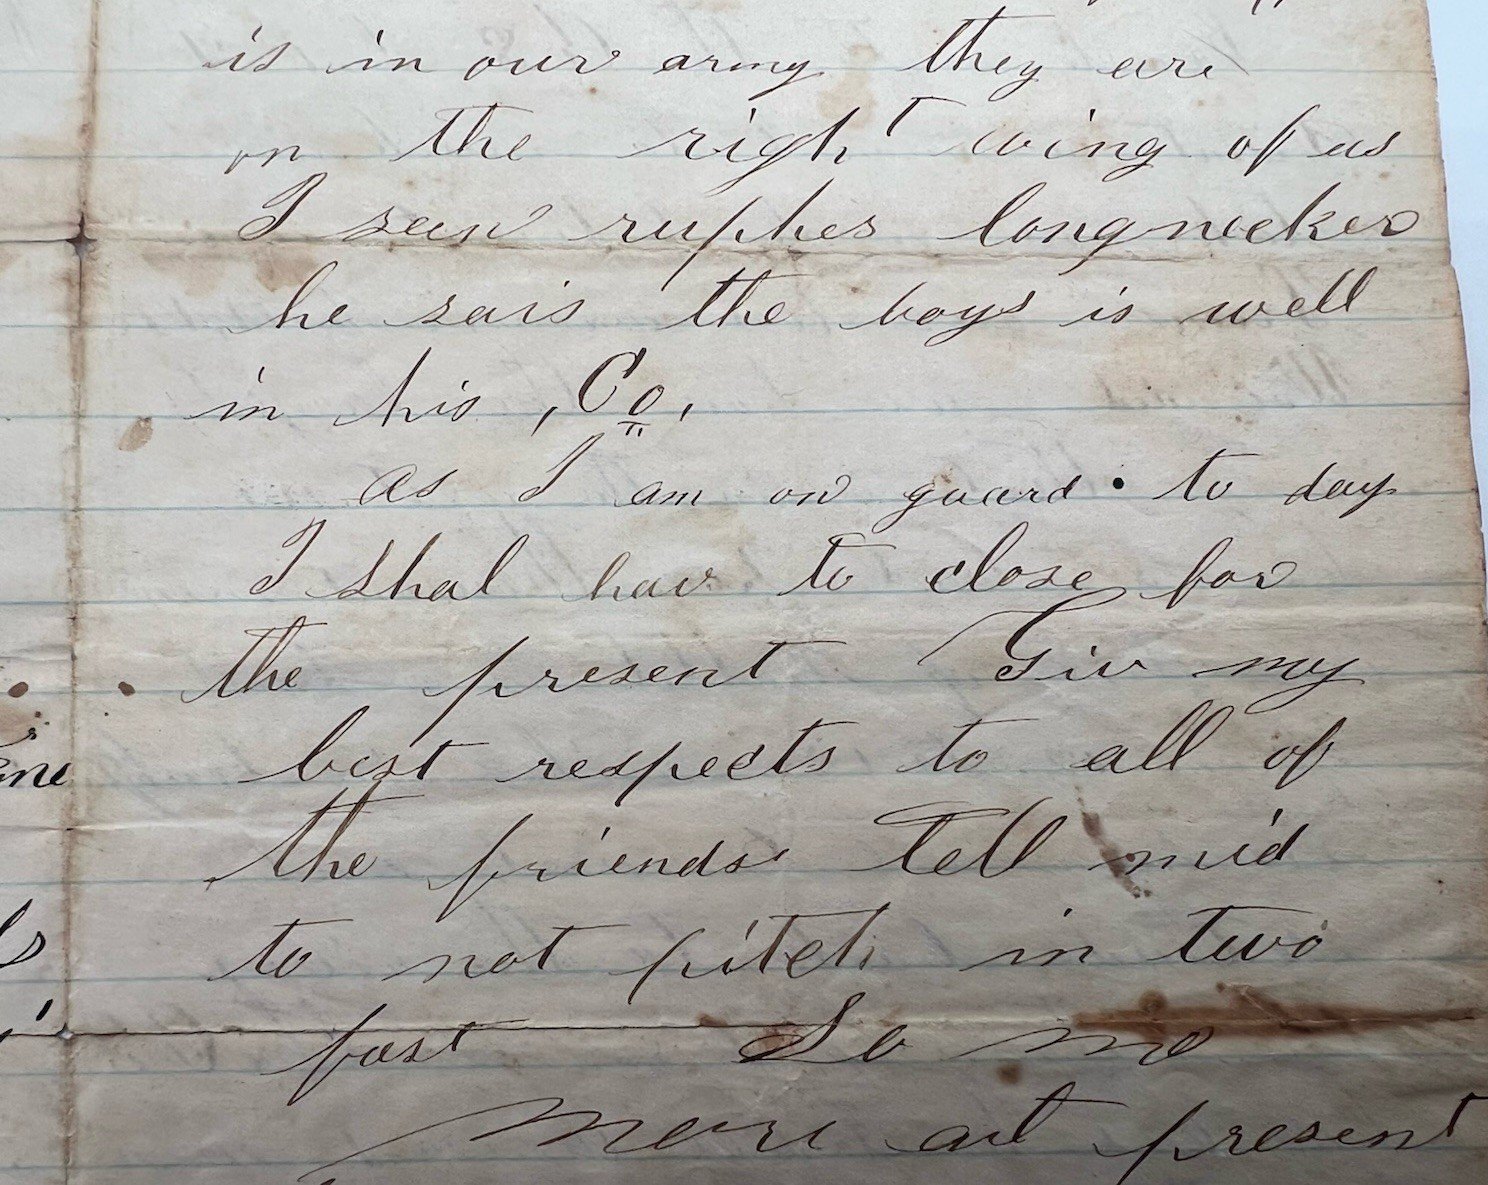 is in our army they are
on the right wing of us
I seen ruphes longnecker
he sais the boys is well
in his , Co,
as I am on guard to day
I shal hav to close for
the present Giv my
best respects to all of
the friends Tell mid
to not pitch in two
fast So no
more at present